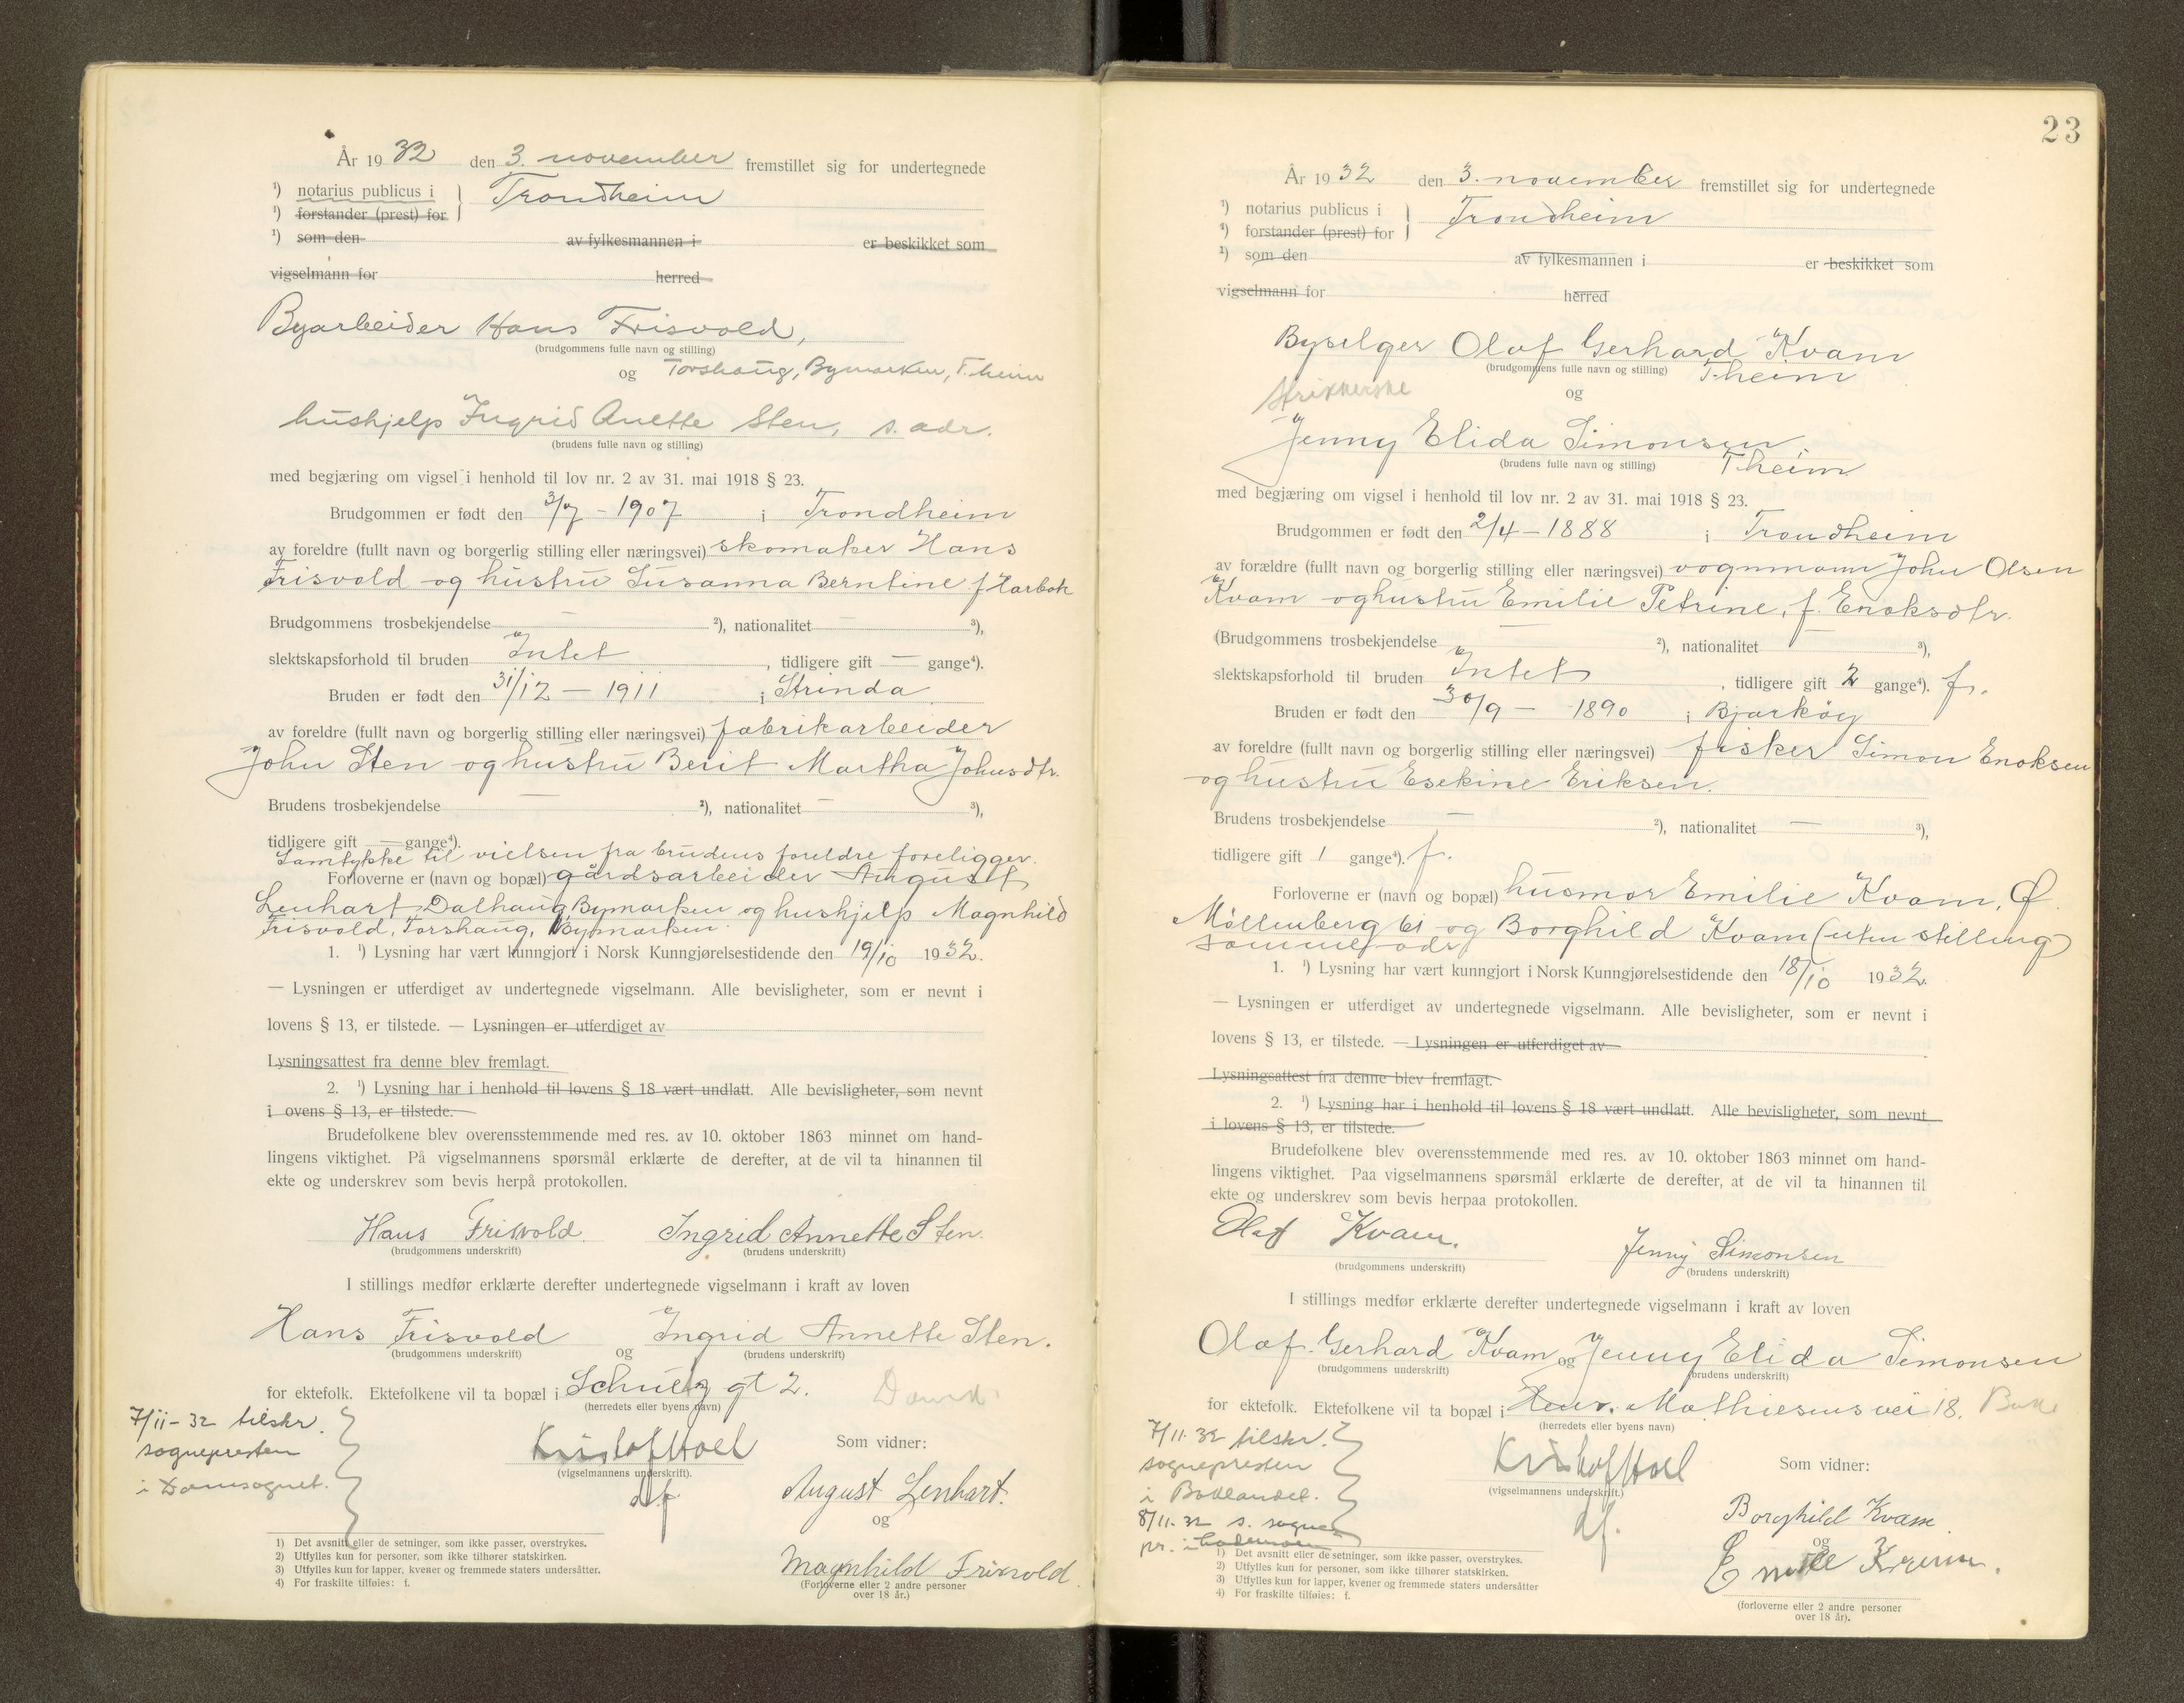 År 1932 den 3. november fremstillet sig for undertegnede
1) notarius publicus i } Trondheim
1) forstander (prest) for
1) som den av fylkesmannen i er beskikket som
vigselmann for herred
Byarbeider Hans Frisvold,
(brudgommens fulle navn og stilling)
og Torshaug, Bymarken, T.heim
hushjelp Ingrid Anette Sten, s. adr.
(brudens fulle navn og stilling)
med begjæring om vigsel i henhold til lov nr. 2 av 31. mai 1918 § 23.
Brudgommen er født den 3/7 - 1907 i Trondheim
av foreldre (fullt navn og borgerlig stilling eller næringsvei) skomaker Hans
Frisvold og hustru Susanna Berntine f. Harbak
Brudgommens trosbekjendelse — 2), nationalitet — 3),
slektskapsforhold til bruden Intet, tidligere gift — gange4).
Bruden er født den 31/12 - 1911 i Strinda
av foreldre (fullt navn og borgerlig stilling eller næringsvei) fabrikarbeider
John Sten og hustru Berit Martha Johnsdtr.
Brudens trosbekjendelse — 2), nationalitet — 3),
tidligere gift — gange4).
Samtykke til vielsen fra brudens foreldre foreligger.
Forloverne er (navn og bopæl) gårdsarbeider August
Lenhart, Dalhaug, Bymarken og hushjelp Magnhild
Frisvold, Torshaug, Bymarken.
1. 1) Lysning har vært kunngjort i Norsk Kunngjørelsestidende den 19/10 1932.
— Lysningen er utferdiget av undertegnede vigselmann. Alle bevisligheter, som er nevnt i
lovens § 13, er tilstede. — Lysningen er utferdiget av
Lysningsattest fra denne blev fremlagt.
2. 1) Lysning har i henhold til lovens § 18 vært undlatt. Alle bevisligheter, som nevnt
i ovens § 13, er tilstede.
Brudefolkene blev overensstemmende med res. av 10. oktober 1863 minnet om hand-
lingens viktighet. På vigselmannens spørsmål erklærte de derefter, at de vil ta hinannen til
ekte og underskrev som bevis herpå protokollen.
Hans Frisvold. Ingrid Annette Sten.
(brudgommens underskrift) (brudens underskrift)
I stillings medfør erklærte derefter undertegnede vigselmann i kraft av loven
Hans Frisvold og Ingrid Annette Sten.
(brudgommens underskrift) (brudens underskrift)
for ektefolk. Ektefolkene vil ta bopæl i Schultz gt 2.
(herredets eller byens navn)
7/11-32 tilskr.
sognepresten
i Domsognet.
Kristof Hoel
(vigselmannens underskrift).
df.
Som vidner:
August Lenhart.
og
Magnhild Frisvold.
(Forloverne eller 2 andre personer
over 18 år.)
1) Det avsnitt eller de setninger, som ikke passer, overstrykes.
2) Utfylles kun for personer, som ikke tilhører statskirken.
3) Utfylles kun for lapper, kvener og fremmede staters undersåtter.
4) For fraskilte tilføies: f.
23
År 1932 den 3. november fremstillet sig for undertegnede
1) notarius publicus i } Trondheim
1) forstander (prest) for
1) som den av fylkesmannen i er beskikket som
vigselmann for herred
Byselger Olaf Gerhard Kvam
(brudgommens fulle navn og stilling) T.heim
strikkerske og
Jenny Elida Simonsen
(brudens fulle navn og stilling) T.heim
med begjæring om vigsel i henhold til lov nr. 2 av 31. mai 1918 § 23.
Brudgommen er født den 2/4 - 1888 i Trondheim
av forældre (fullt navn og borgerlig stilling eller næringsvei) vognmann John Olsen
Kvam og hustru Emilie Petrine, f. Enoksdtr.
(Brudgommens trosbekjendelse — 2), nationalitet — 3),
slektskapsforhold til bruden Intet, tidligere gift 2 gange4). f.
Bruden er født den 30/9 - 1890 i Bjarköy
av foreldre (fullt navn og borgerlig stilling eller næringsvei) fisker Simon Enoksen
og hustru Esekine Eriksen.
Brudens trosbekjendelse — 2), nationalitet — 3),
tidligere gift 1 gange4). f.
Forloverne er (navn og bopæl) husmor Emilie Kvam, Ø.
Möllenberg 61 og Borghild Kvam (uten stilling)
samme adr.
1. 1) Lysning har vært kunngjort i Norsk Kunngjørelsestidende den 18/10 1932.
— Lysningen er utferdiget av undertegnede vigselmann. Alle bevisligheter, som er nevnt i
lovens § 13, er tilstede. — Lysningen er utferdiget av
Lysningsattest fra denne blev fremlagt.
2. 1) Lysning har i henhold til lovens § 18 vært undlatt. Alle bevisligheter, som nevnt
i lovens § 13, er tilstede.
Brudefolkene blev overensstemmende med res. av 10. oktober 1863 minnet om hand-
lingens viktighet. Paa vigselmannens spørsmål erklærte de derefter, at de vil ta hinannen til
ekte og underskrev som bevis herpaa protokollen.
Olaf Kvam. Jenny Simonsen
(brudgommens underskrift) (brudens underskrift)
I stillings medfør erklærte derefter undertegnede vigselmann i kraft av loven
Olaf Gerhard Kvam og Jenny Elida Simonsen
(brudgommens underskrift) (brudens underskrift)
for ektefolk. Ektefolkene vil ta bopæl i Henr. Mathiesens vei 18.
(herredets eller byens navn)
7/11.32 tilskr.
sognepresten
i Baklandet.
8/11.32 s. sogne
pr. i Lademoen
Kristof Hoel
(vigselmannens underskrift.)
df.
Som vidner:
Borghild Kvam
og
Emilie Kvam.
(forloverne eller 2 andre personer
over 18 år).
1) Det avsnitt eller de setninger, som ikke passer, overstrykes.
2) Utfylles kun for personer, som ikke tilhører statskirken.
3) Utfylles kun for lapper, kvener og fremmede staters undersåtter
4) For fraskilte tilføies: f.